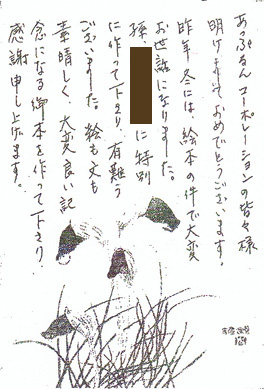 あっぷるんコーポレーションの皆々様
明けましておめでとうございます。
昨年冬には、絵本の件で大変
お世話になりました。
孫、に特別
に作って下さり、有難う
ございました。絵も文も
素晴しく、大変良い記
念になる御本を作って下さり
感謝申し上げます。